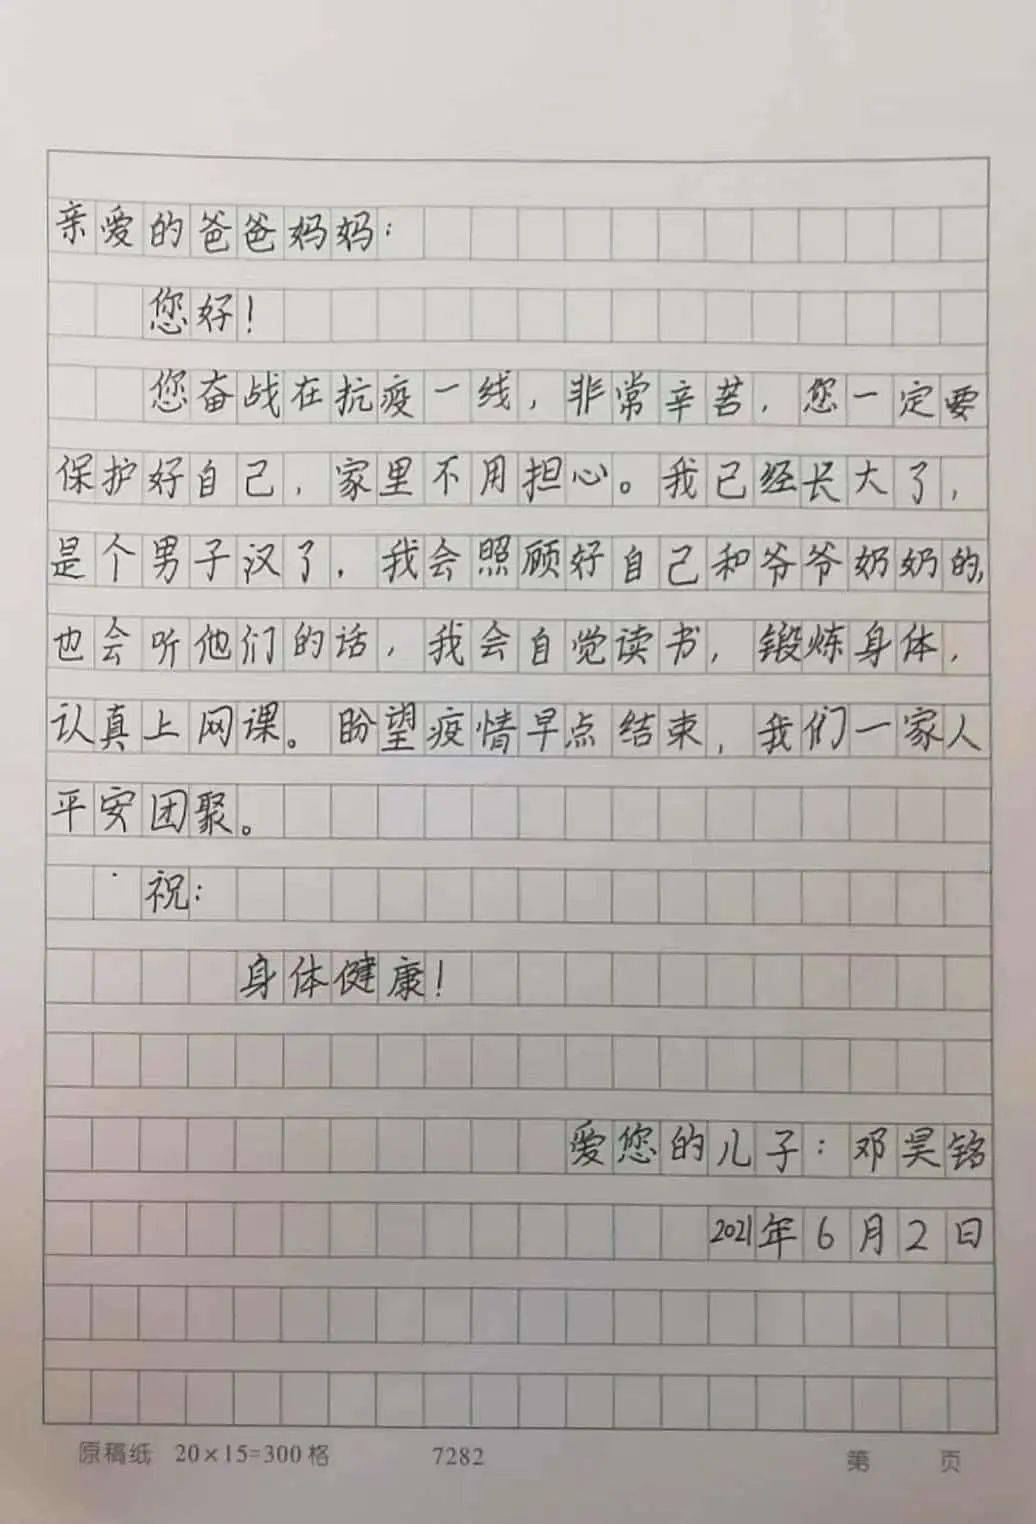 亲爱的爸爸妈妈：
您好！
您奋战在抗疫一线，非常辛苦，您一定要
保护好自己，家里不用担心。我已经长大了，
是个男子汉了，我会照顾好自己和爷爷奶奶的，
也会听他们的话，我会自觉读书，锻炼身体，
认真上网课。盼望疫情早点结束，我们一家人
平安团聚。
祝：
身体健康！
爱您的儿子：邓昊铭
2021年6月2日
原稿纸 20×15=300格 7282 第 页